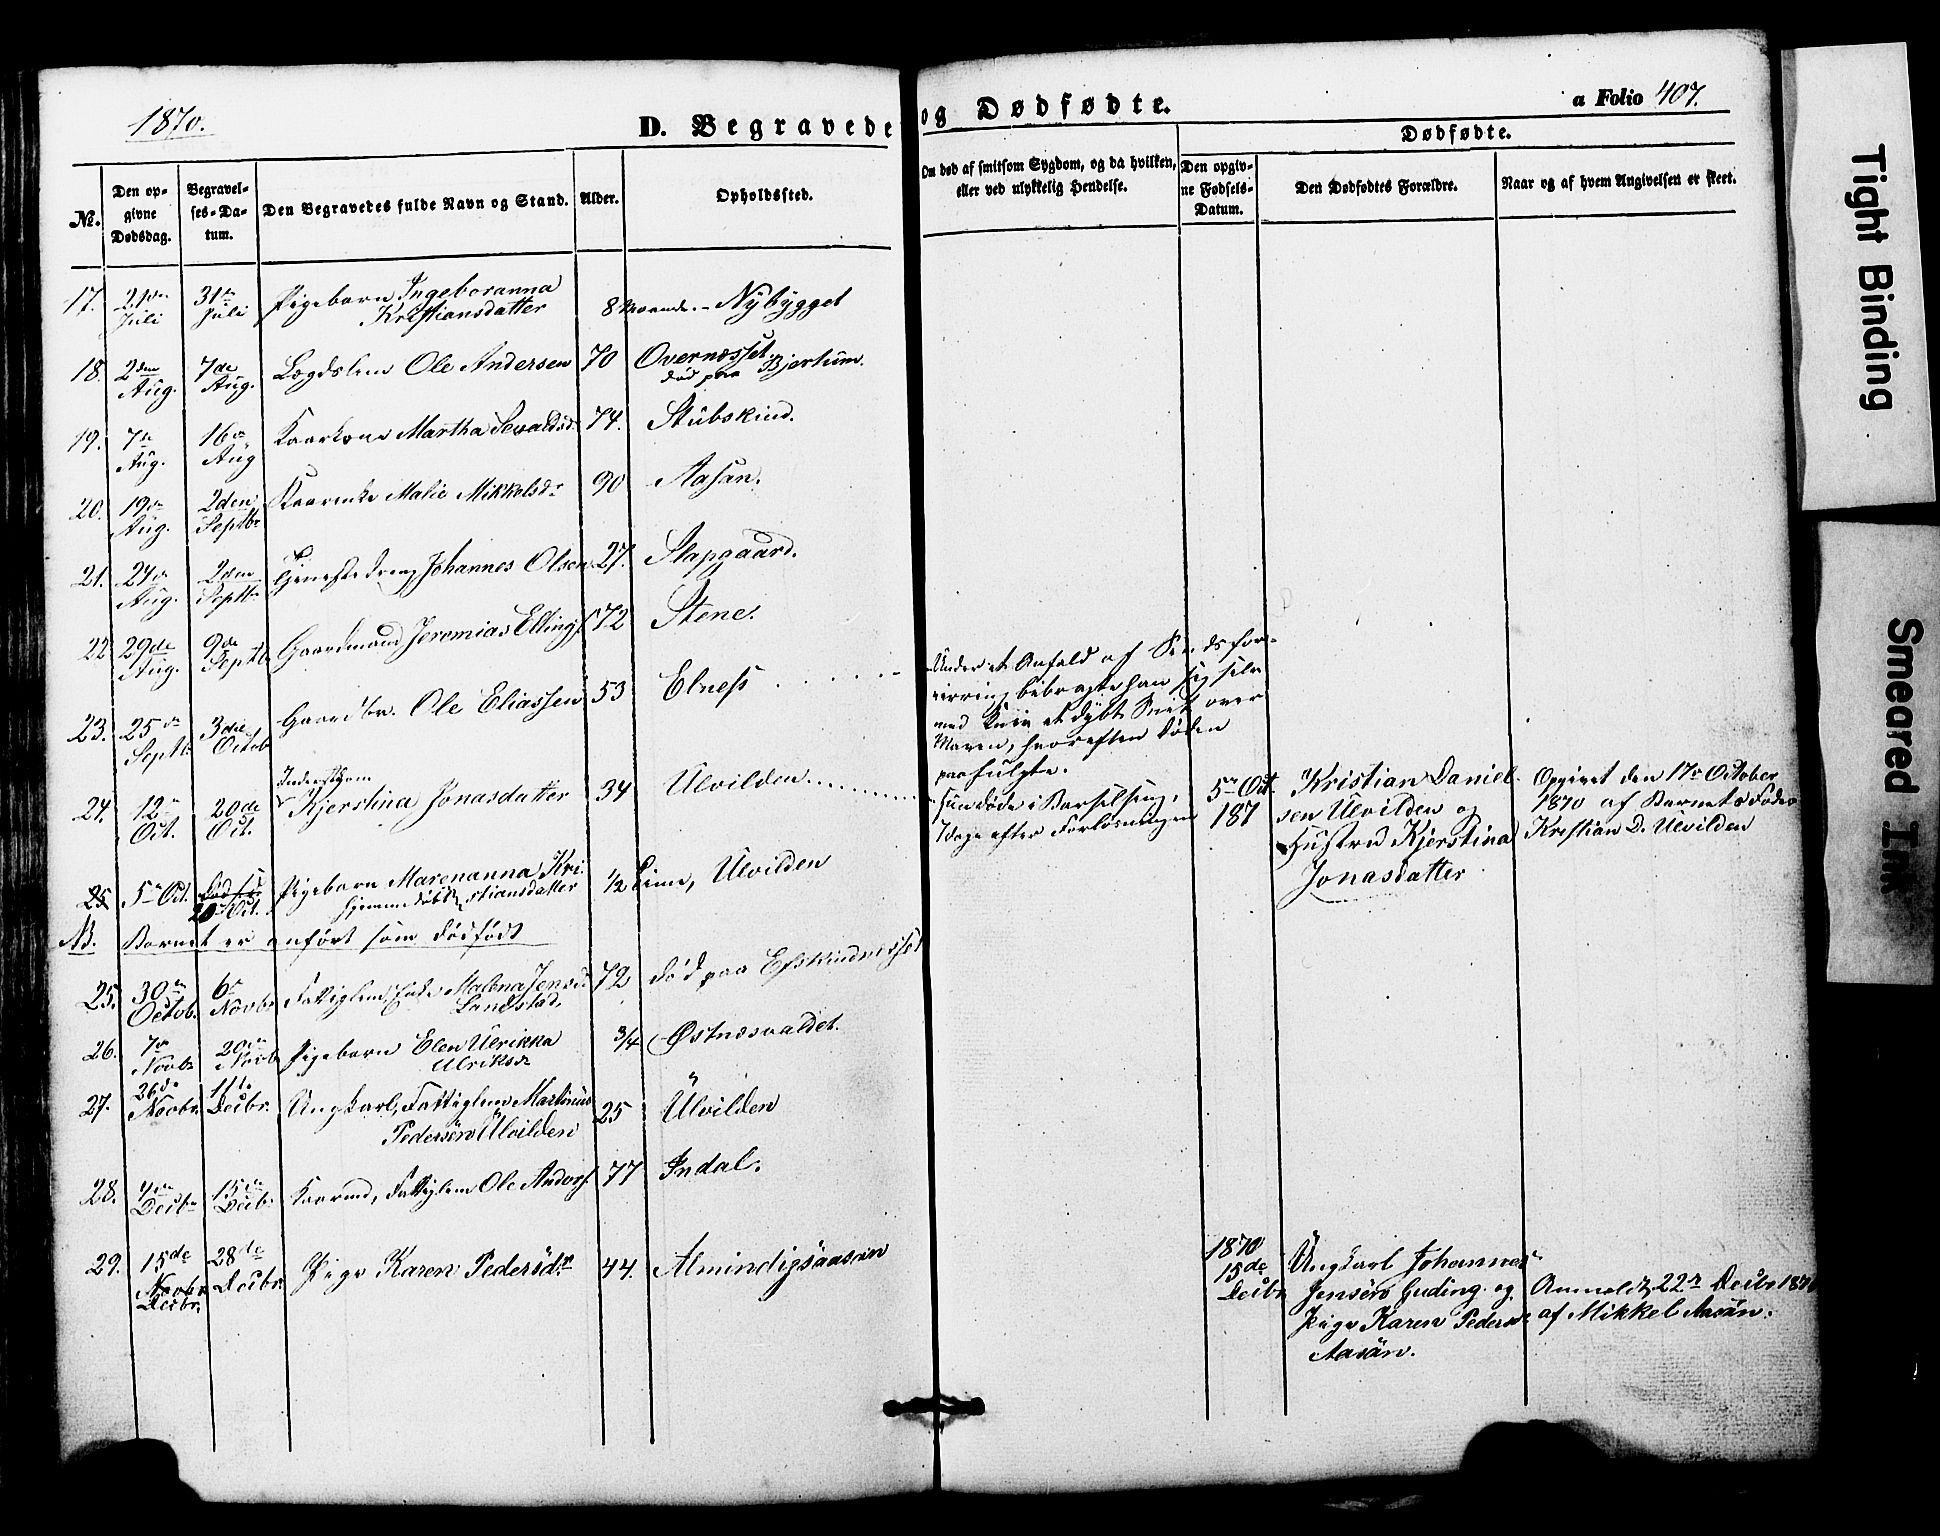 1870.
D. Begravede og Dødfødte.
a Folio 407.
Dødfødte.
№.
Den op-
givne
Dødsdag.
Begravel-
ses-Da-
tum.
Den Begravedes fulde Navn og Stand.
Alder.
Opholdssted.
Om død af smitsom Sygdom, og da hvilken,
eller ved ulykkelig Hendelse.
Den opgiv-
ne Fødsels-
Datum.
Den Dødfødtes Forældre.
Naar og af hvem Angivelsen er skeet.
17. 21de Juli 31te Juli Pigebarn Ingeboranna
Kristiansdatter 8 Maaneder - Nybygget
18. 2den Aug. 7de Aug. Lægdslem Ole Andersen 70 Overnesset.
død paa Bjertum.
19. 7de Aug. 16de Aug Kaarkone Martha Sevaldsd. 74. Stubskind.
20. 19de Aug. 2den Septbr Kaarenke Malie Mikkelsdr 90 Aasan.
21. 24de Aug. 2den Septbr Tjenestedreng Johannes Olsen 27. Slapgaard.
22 29de Aug. 9de Septbr Gaardmand Jeremias Ellings 72 Stene.
23. 25de Septbr 3die Octob Gaardbr. Ole Eliassen 53 Elness
Under et Anfald af Sindsfor-
virring bibragte han sig selv
med Kniv et dybt Snit over
Maven, hvorefter Døden
paafulgte.
24. 12te Oct. 20de Oct. Inderst
Kjerstina Jonasdatter 34 Ulvilden
Hun døde i Barselseng,
7 dage efter Forløsningen
5te Oct. 187
Kristian Daniel-
sen Ulvilden og
Hustru Kjerstina
Jonasdatter
Opgivet den 17de October
1870 af Barnets Fader
Kristian D. Ulvilden
25 5te Oct. 20de Oct. Pigebarn Marenanna Kri-
hjemmedøbt stiansdatter 1/2 Time, Ulvilden
NB. Barnet er anført som dødfødt
25. 30te Octob. 6te Novbr Fattiglem, Enke Malena Jensd.
Landstad. 72 død paa Esskindnesset
26. 7de Novbr 20de Novb Pigebarn Elen Ulrikka
Ulriksdr 3/4 Østnesvaldet.
27. 26de Novbr. 11te Decbr. Ungkarl, Fattiglem Martinus
Pedersen Ulvilden 25 Ulvilden
28. 4de Decbr 15de Decbr. Kaarmd, Fattiglem Ole Anders 77 Indal.
29. 15de Novbr Decbr. 28de Decbr. Pige Karen Pedersdr. 44. Almindigsaasen
1870
15de
Decbr
Ungkarl Johannes
Jensen Guding og
Pige Karen Pedersdr
Aasan.
Anmeldt 22de Decbr 1870
af Mikkel Aasan.
Tight Binding
Smeared Ink